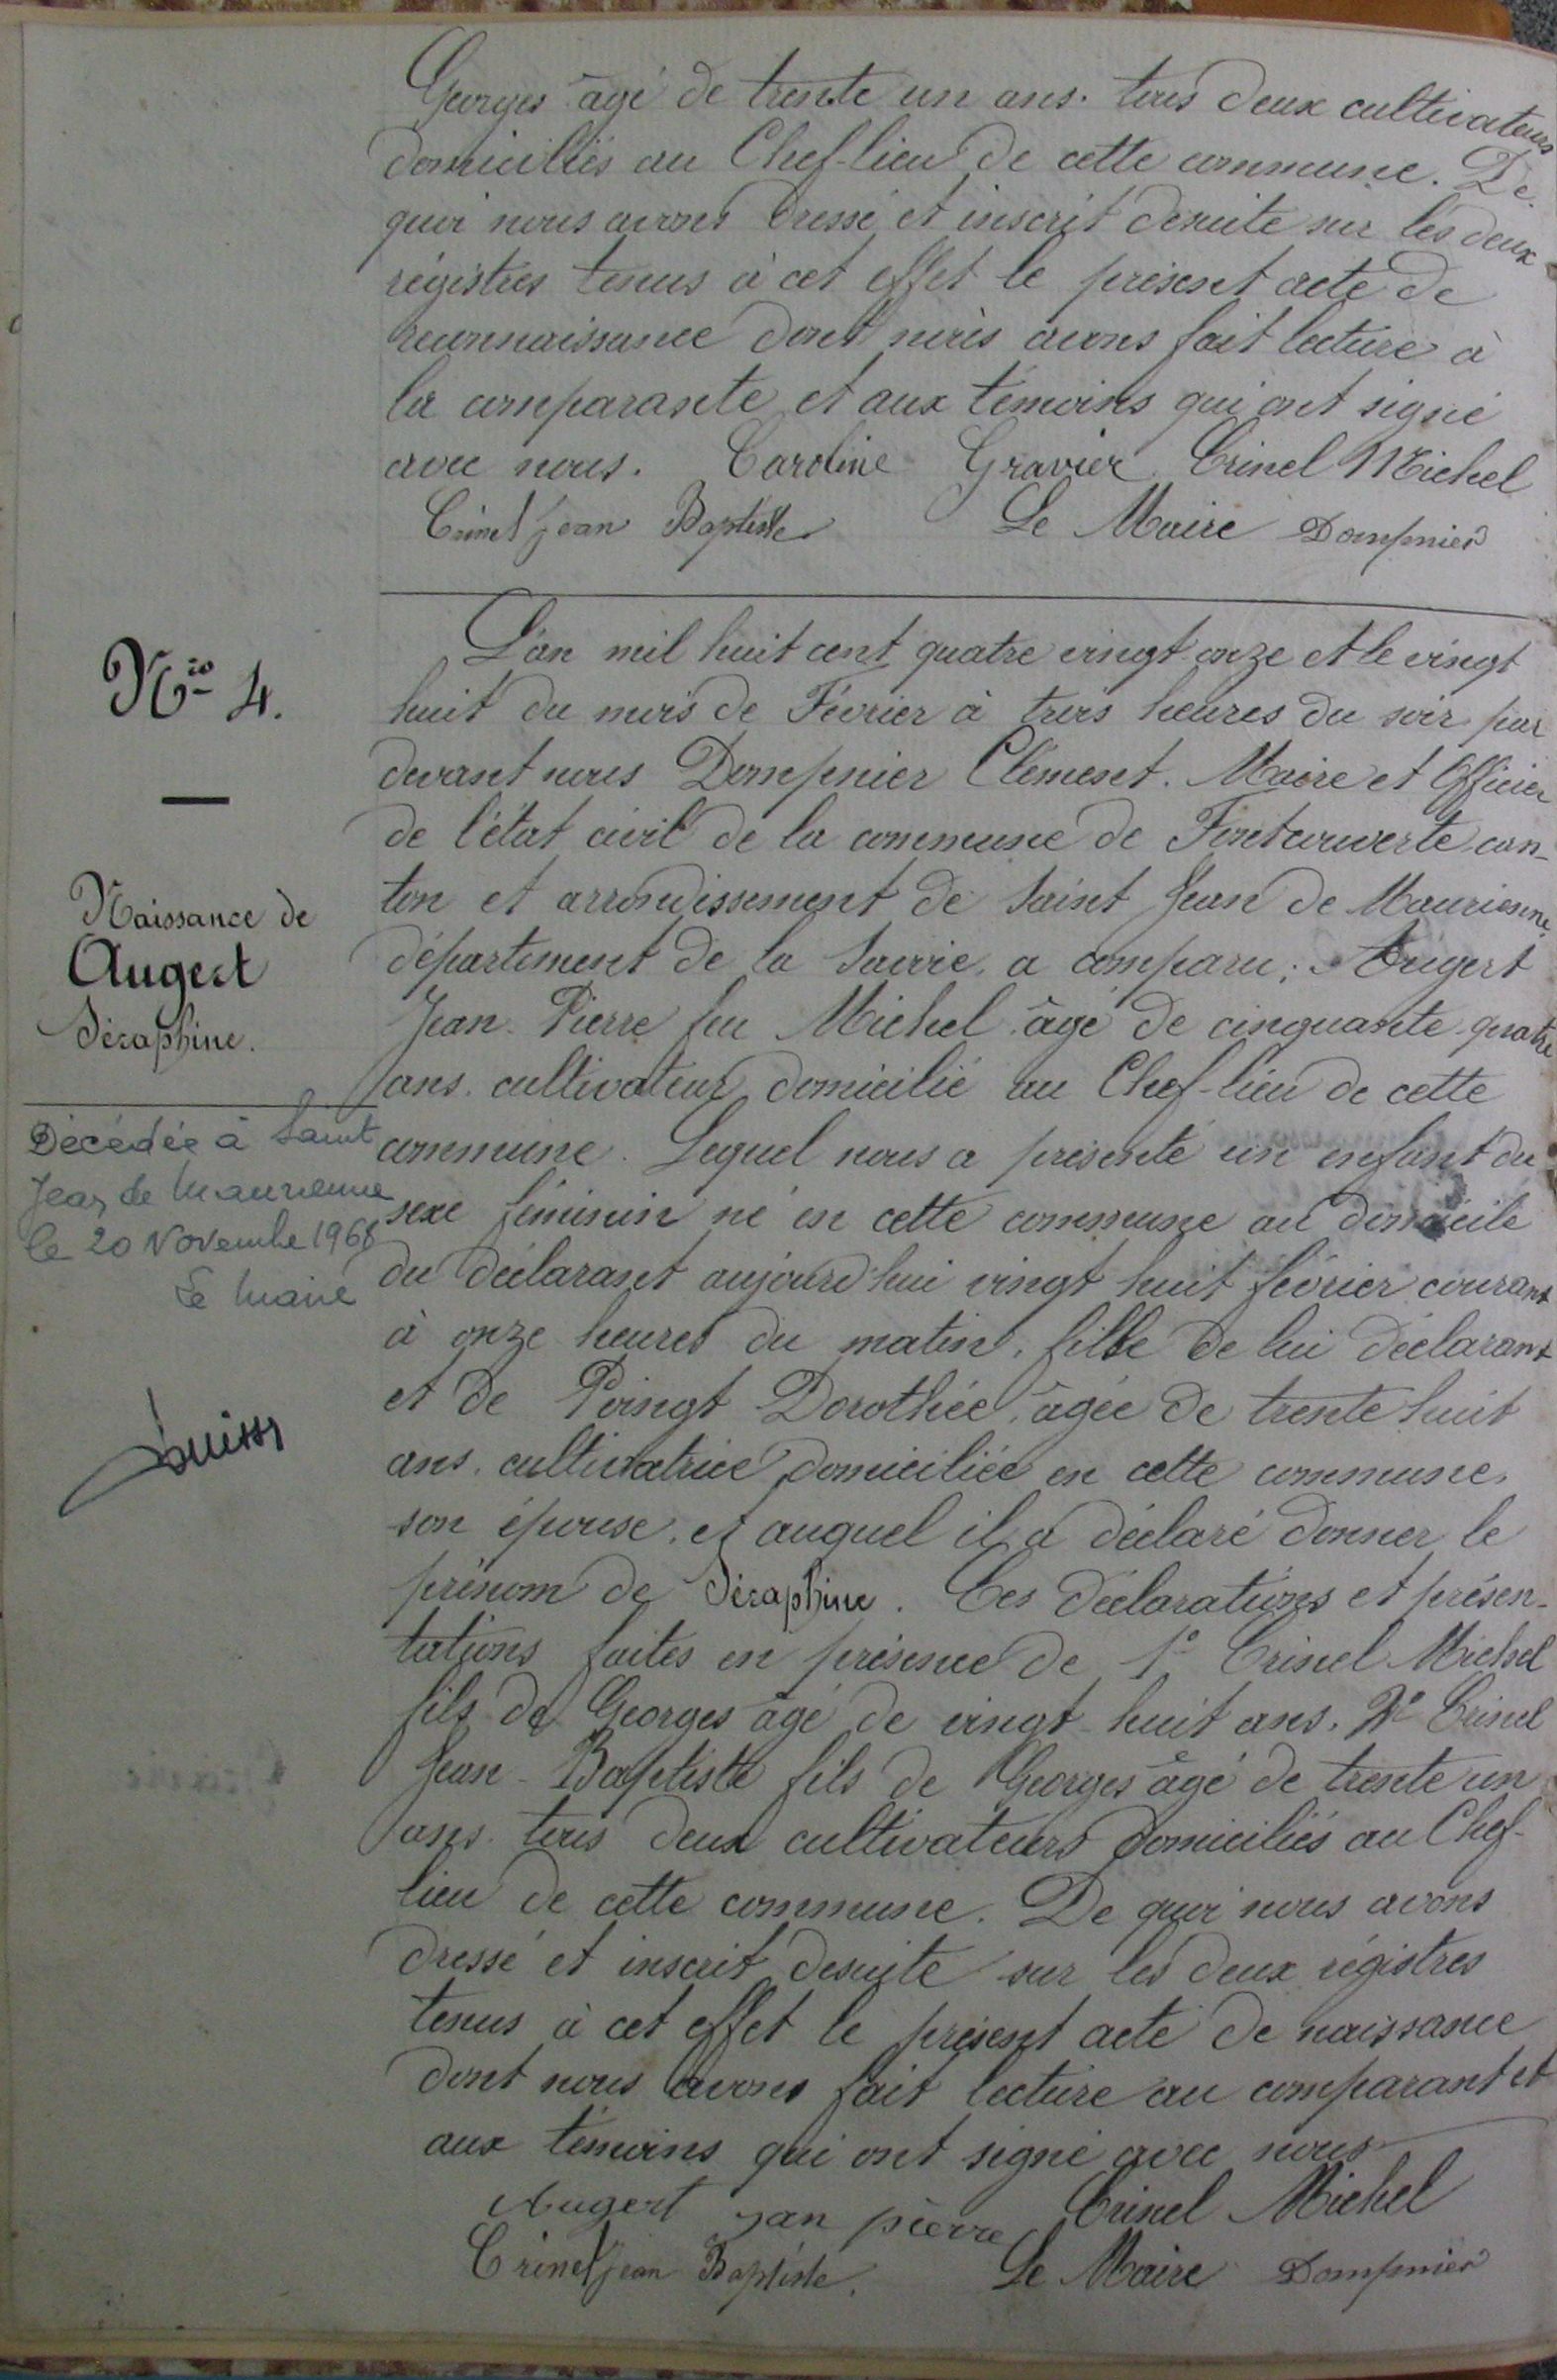 Georges âgé de trente un ans. tous deux cultivateurs
domiciliés au Chef-lieu de cette commune. De
quoi nous avons dressé et inscrit desuite sur les deux
régistres tenus à cet effet le présent acte de
reconnaissance dont nous avons fait lecture à
la comparante et aux témoins qui ont signé
avec nous. Caroline Gravier Crinel Michel
Crinel jean Baptiste Le Maire Dompnier
L'an mil huit cent quatre vingt onze et le vingt
huit du mois de Février à trois heures du soir par
devant nous Dompnier Clément. Maire et Officier
de l'état civil de la commune de Fontcouverte can-
ton et arrondissement de Saint Jean de Maurienne,
département de la Savoie, a comparu; Augert
Jean-Pierre feu Michel âgé de cinquante-quatre
ans. cultivateur domicilié au Chef-lieu de cette
commune. Lequel nous a présenté un enfant du
sexe féminin né en cette commune au domicile
du déclarant aujourd'hui vingt huit février courant
à onze heures du matin, fille de lui déclarant
et de Poingt Dorothée, âgée de trente huit
ans. cultivatrice domiciliée en cette commune,
son épouse. et auquel il a déclaré donner le
prénom de Séraphine. Ces déclarations et présen-
tations faites en présence de 1° Crinel Michel
fils de Georges âgé de vingt huit ans. 2° Crinel
Jean-Baptiste fils de Georges âgé de trente un
ans. tous deux cultivateurs domiciliés au Chef-
lieu de cette commune. De quoi nous avons
dressé et inscrit desuite sur les deux régistres
tenus à cet effet le présent acte de naissance
dont nous avons fait lecture au comparant et
aux témoins qui ont signé avec nous
Augert jan pierre Crinel Michel
Crinel jean Baptiste. Le Maire Dompnier
Nro 4.
Naissance de
Augert
Séraphine.
Décédée à Saint
Jean de Maurienne
le 20 Novembre 1968
Le Maire